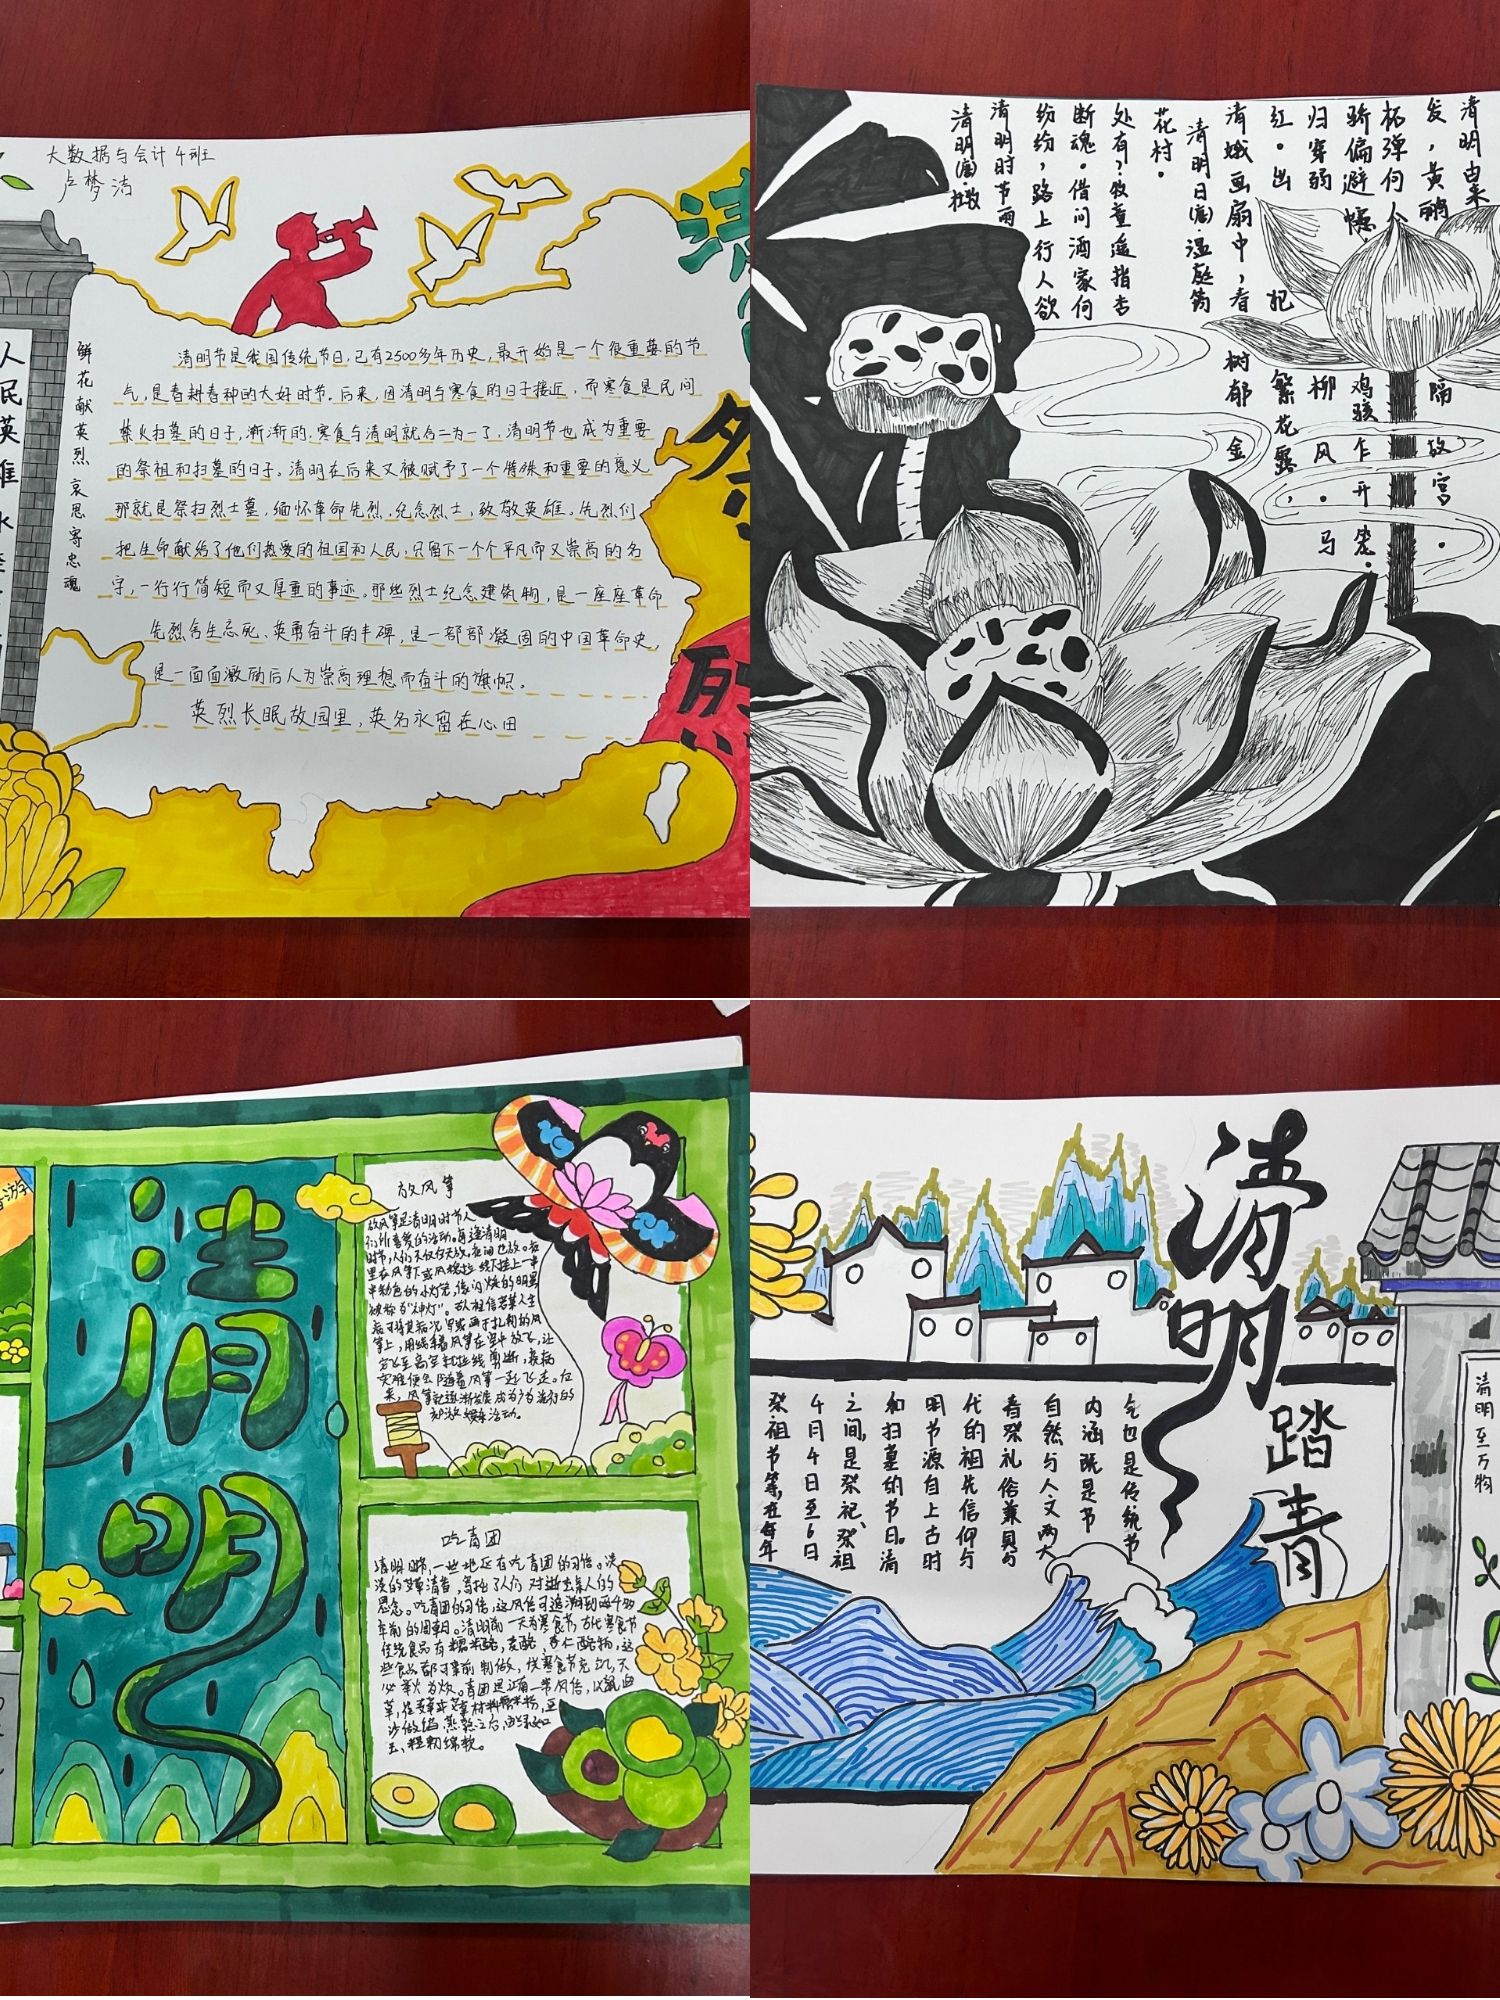 大数据与会计4班
卢梦洁
清
祭
烈
人民英雄永
鲜花献英烈 哀思寄忠魂
清明节是我国传统节日,已有2500多年历史,最开始是一个很重要的节
气,是春耕春种的大好时节。后来,因清明与寒食的日子接近,而寒食是民间
禁火扫墓的日子,渐渐的,寒食与清明就合二为一了,清明节也成为重要
的祭祖和扫墓的日子。清明在后来又被赋予了一个特殊和重要的意义
那就是祭扫烈士墓,缅怀革命先烈,纪念烈士,致敬英雄。先烈们
把生命献给了他们热爱的祖国和人民,只留下一个个平凡而又崇高的名
字,一行行简短而又厚重的事迹。那些烈士纪念建筑物,是一座座革命
先烈舍生忘死、英勇奋斗的丰碑,是一部部凝固的中国革命史,
是一面面激励后人为崇高理想而奋斗的旗帜。
英烈长眠故园里,英名永留在心田
清明由来
发,黄鹂
杯弹何人
骄偏避幰
归穿弱
红。出
清娥画扇中,春
清明日(唐)温庭筠
花村。
处有?牧童遥指杏
断魂。借问酒家何
纷纷,路上行人欲
清明时节雨
清明(唐)杜牧
隔故宫。
鸡骇乍开笼。
柳风。马
杷繁花露,
树郁金
清明
放风筝
放风筝是清明时节人
们所喜爱的活动。每逢清明
时节,人们不仅白天放,夜间也放。夜
里在风筝下或风稳拉线上挂上一串
串彩色的小灯笼,像闪烁的明星
被称为“神灯”。
筝上,用线牵着风筝在空中放飞,让
它飞至高空就拉线剪断,疾病
灾难便会随着风筝一起飞走。后
来,风筝就逐渐发展成为广为流行的
娱乐活动。
吃青团
清明时,一些地区有吃青团的习俗。淡
淡的艾草清香,寄托了人们对逝去亲人的
思念。吃青团的习俗,这风俗可追溯到两千多
年前的周朝。清明前一天为寒食节,古代寒食节
传统食品有糯米酪、麦酪、杏仁酪物,这
些食品都可事前制做,供寒食节充饥,不
必举火为炊。青团
沙做馅,蒸熟之后
清明
踏青
气也是传统节
内涵既是节
自然与人文两大
春祭礼俗兼具与
代的祖先信仰与
明节源自上古时
和扫墓的节日。清
之间,是祭祀、祭祖
4月4日至6日
祭祖节等,在每年
清明至万物